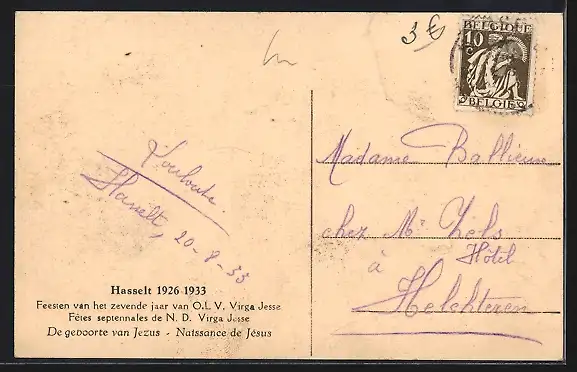 3 €
BELGIQUE
10
c
BELGIË
Madame Ballieune
chez Mr Nels
Hôtel
à
Helchteren
Louloute
Hasselt, 20-8-33
Hasselt 1926-1933
Feesten van het zevende jaar van O. L. V. Virga Jesse
Fêtes septennales de N. D. Virga Jesse
De geboorte van Jezus - Naissance de Jésus